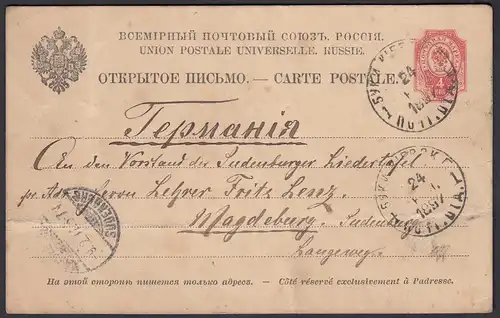 ВСЕМІРНЫЙ ПОЧТОВЫЙ СОЮЗЪ. РОССІЯ.
UNION POSTALE UNIVERSELLE. RUSSIE.
ОТКРЫТОЕ ПИСЬМО. — CARTE POSTALE.
4
24
1897
Германія
An den Vorstand der Sudenburger Liedertafel
pr. Adr. Herrn Lehrer Fritz Lenz
Magdeburg, Sudenburg
Langeweg.
24
1897
SUDENBURG
На этой сторонѣ пишется только адресъ. — Côté réservé exclusivement à l'adresse.